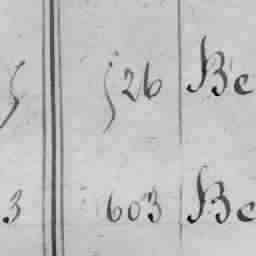 5 526 Be
3 603 Be